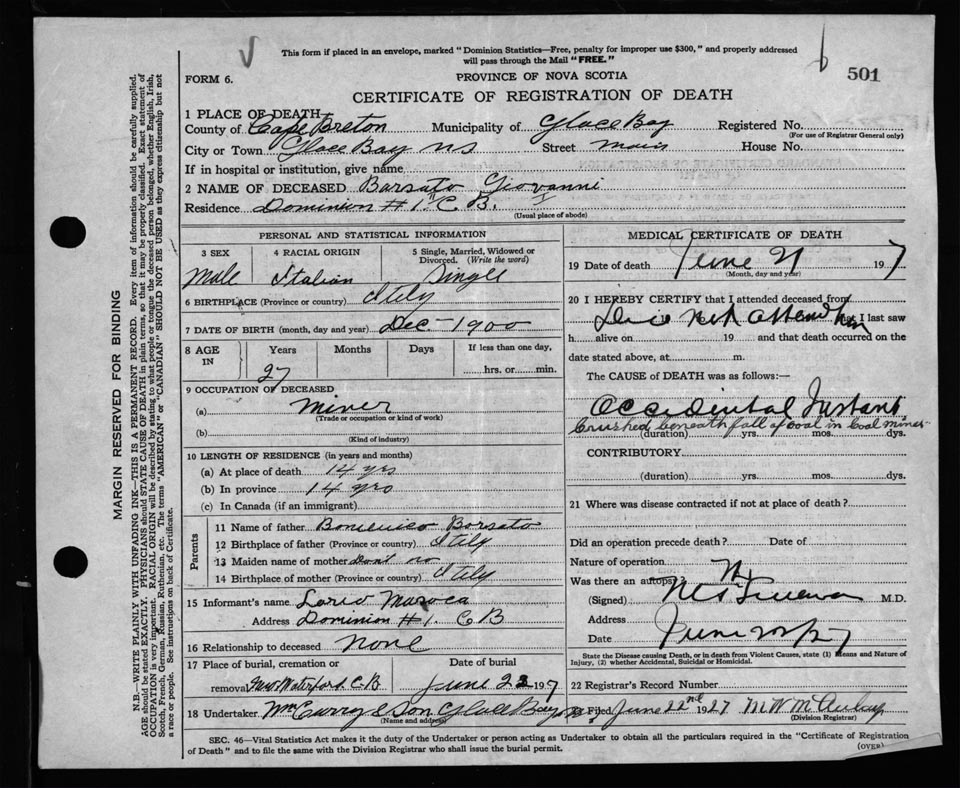 This form if placed in an envelope, marked "Dominion Statistics—Free, penalty for improper use $300," and properly addressed
will pass through the Mail "FREE."
FORM 6.
PROVINCE OF NOVA SCOTIA
501
CERTIFICATE OF REGISTRATION OF DEATH
1 PLACE OF DEATH
County of Cape Breton Municipality of Glace Bay Registered No.
(For use of Registrar General only)
City or Town Glace Bay NS Street Main House No.
If in hospital or institution, give name
2 NAME OF DECEASED Borsato Giovanni
Residence Dominion #1. C. B.
(Usual place of abode)
PERSONAL AND STATISTICAL INFORMATION
3 SEX 4 RACIAL ORIGIN 5 Single, Married, Widowed or
Divorced. (Write the word)
Male Italian Single
6 BIRTHPLACE (Province or country) Itily
7 DATE OF BIRTH (month, day and year) Dec - 1900
8 AGE IN Years Months Days If less than one day,
27 hrs. or min.
9 OCCUPATION OF DECEASED
(a) Miner
(Trade or occupation or kind of work)
(b)
(Kind of industry)
10 LENGTH OF RESIDENCE (in years and months)
(a) At place of death 14 yrs
(b) In province 14 yrs
(c) In Canada (if an immigrant)
Parents
11 Name of father Borsato
12 Birthplace of father (Province or country) Itily
13 Maiden name of mother Dont no
14 Birthplace of mother (Province or country) Itily
15 Informant's name
Address Dominion #1. CB
16 Relationship to deceased None
17 Place of burial, cremation or Date of burial
removal New Waterford C.B June 23 1927
18 Undertaker McCurry & Son Glace Bay
(Name and address)
MEDICAL CERTIFICATE OF DEATH
19 Date of death June 21 1927
(Month, day and year)
20 I HEREBY CERTIFY that I attended deceased from
Did not attend him that I last saw
h alive on 19 and that death occurred on the
date stated above, at m.
The CAUSE of DEATH was as follows:—
Accidental Instant
Crushed beneath fall of coal in Coal mines
(duration) yrs. mos. dys.
CONTRIBUTORY
(duration) yrs. mos. dys.
21 Where was disease contracted if not at place of death?
Did an operation precede death? Date of
Nature of operation
Was there an autopsy? No
(Signed) M.D.
Address
Date June
State the Disease causing Death, or in death from Violent Causes, state (1) Means and Nature of
Injury, (2) whether Accidental, Suicidal or Homicidal.
22 Registrar's Record Number
Filed June 22nd 1927 M W McAulay
(Division Registrar)
SEC. 46—Vital Statistics Act makes it the duty of the Undertaker or person acting as Undertaker to obtain all the particulars required in the "Certificate of Registration
of Death" and to file the same with the Division Registrar who shall issue the burial permit.
(OVER)
MARGIN RESERVED FOR BINDING
N.B.—WRITE PLAINLY WITH UNFADING INK—THIS IS A PERMANENT RECORD. Every item of information should be carefully supplied.
AGE should be stated EXACTLY. PHYSICIANS should STATE CAUSE OF DEATH in plain terms, so that it may be properly classified. Exact statement of
OCCUPATION is very important. RACIAL ORIGIN will be described by stating to what people or tongue the deceased person belonged, whether English, Irish,
Scotch, French, German, Russian, Ruthenian, etc. The terms "AMERICAN" or "CANADIAN" SHOULD NOT BE USED as they express citizenship but not
a race or people. See instructions on back of Certificate.